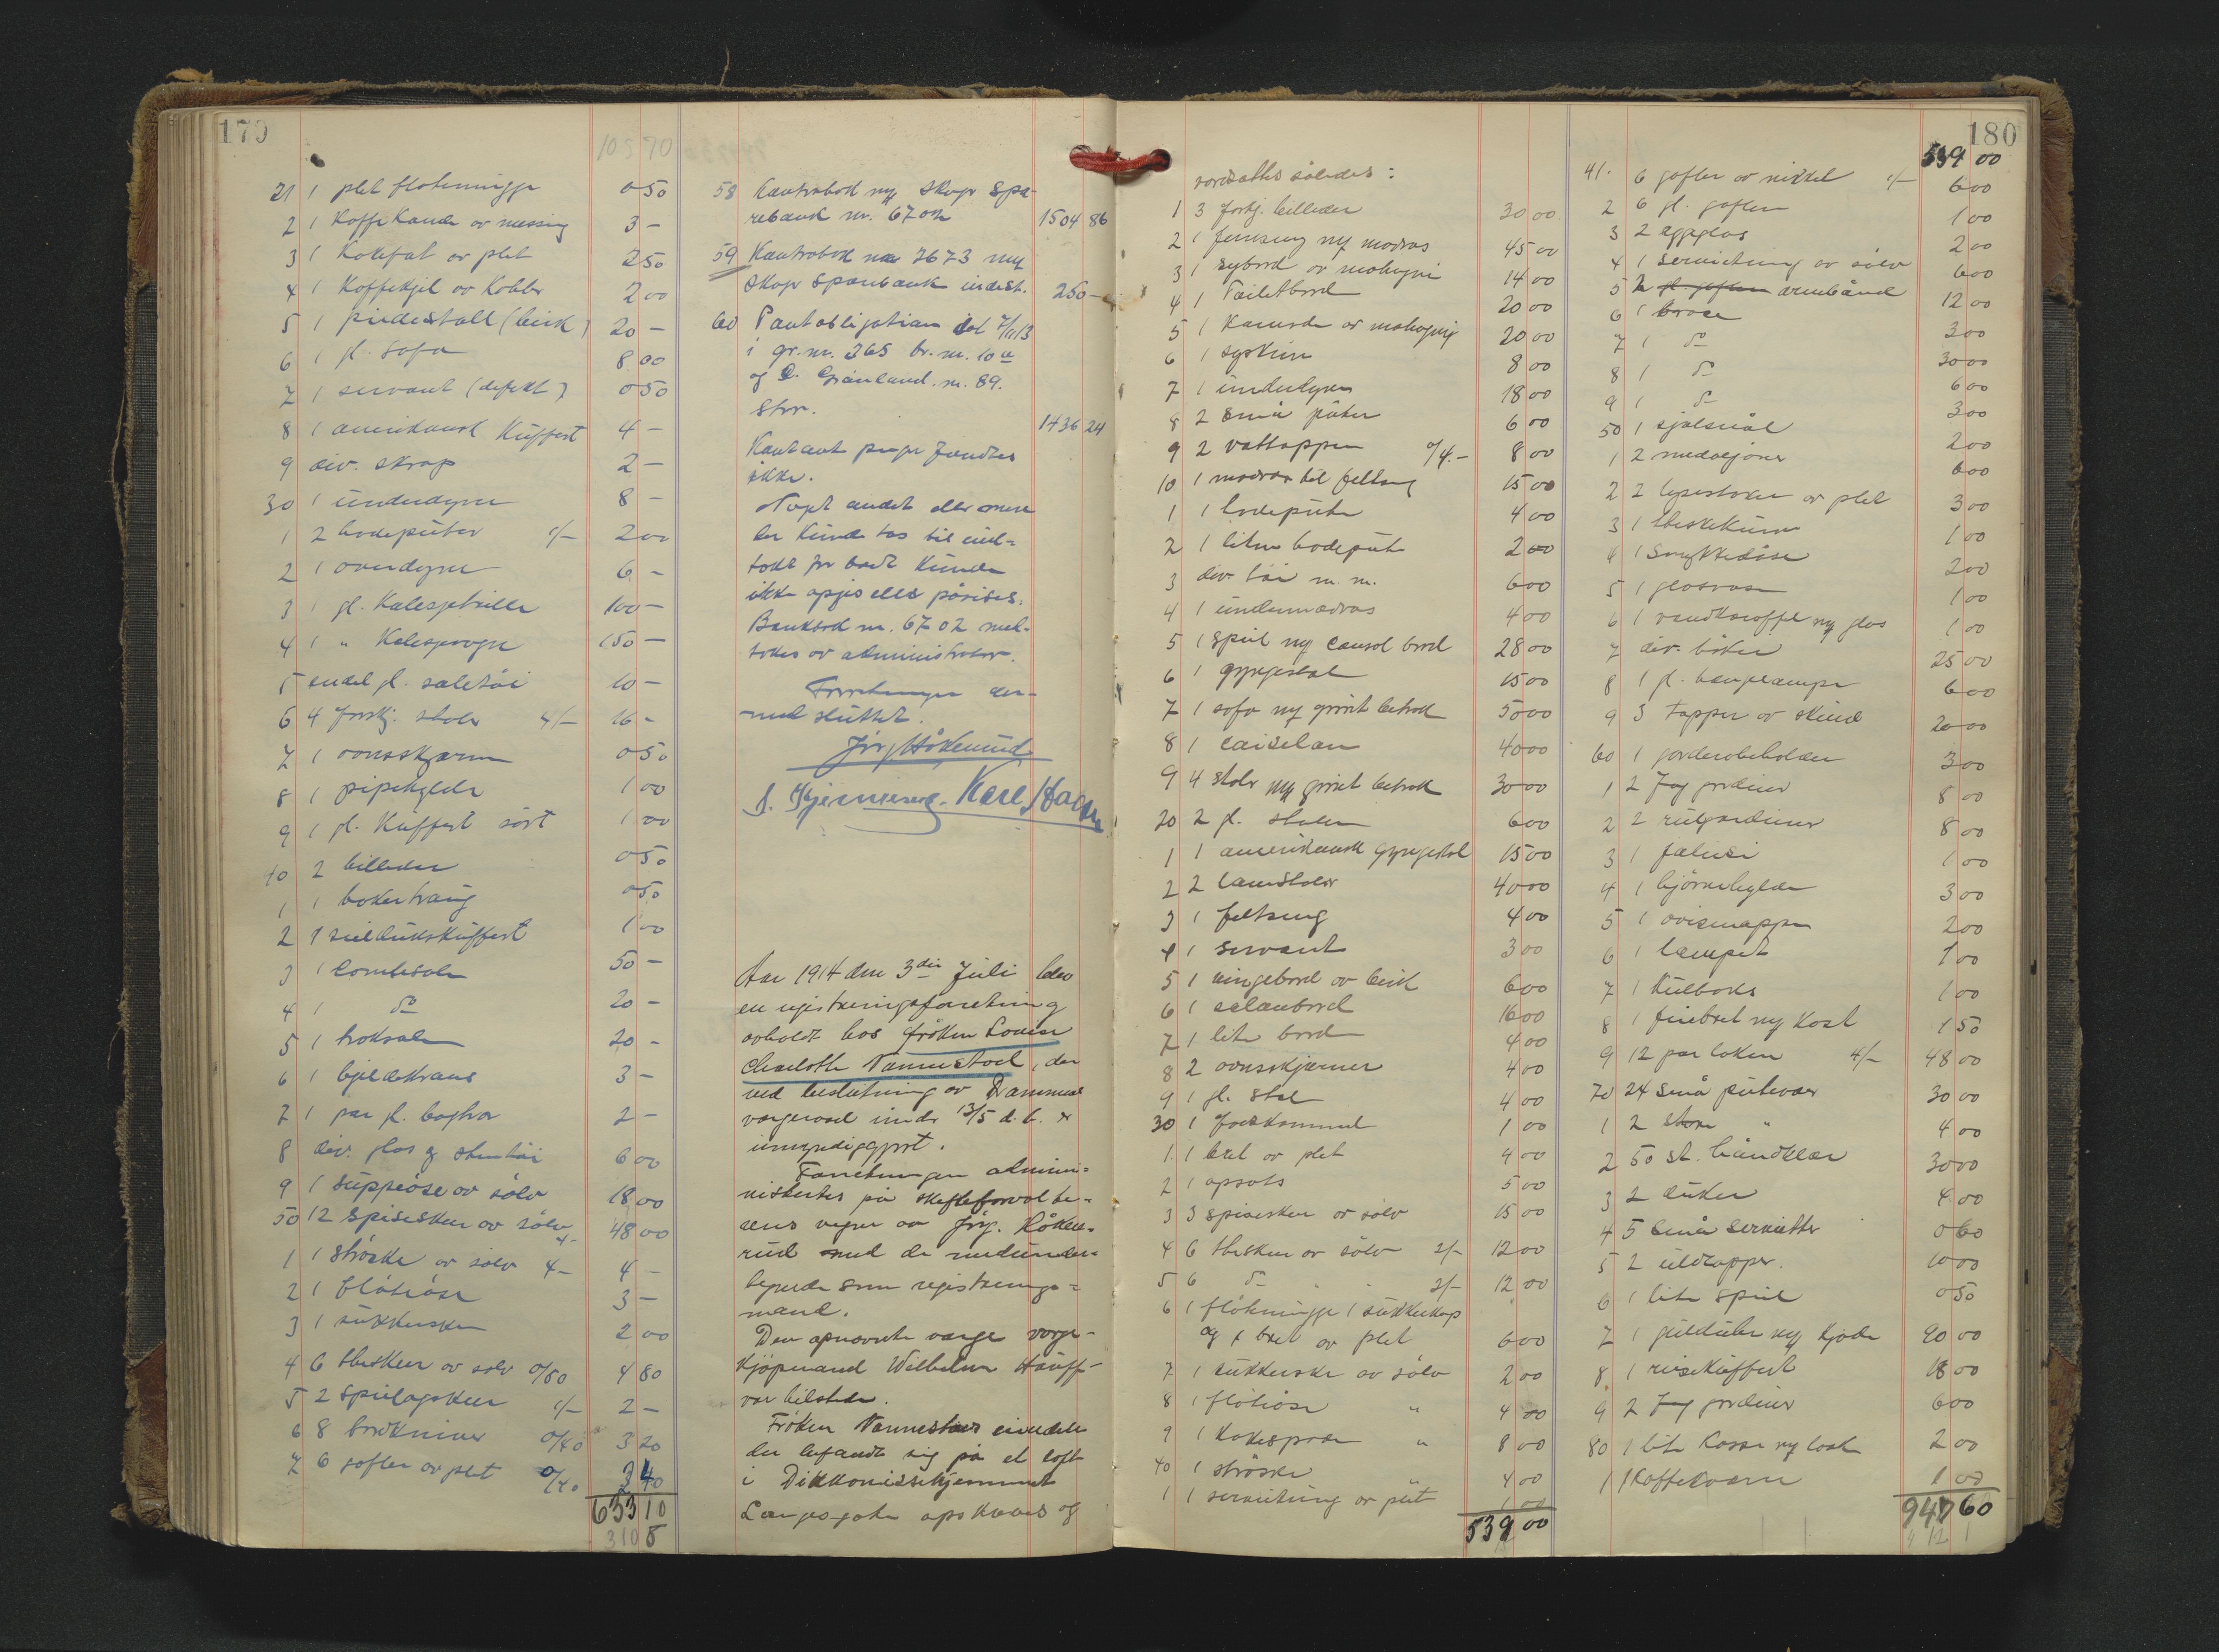 179
105 70
21 1 plet fløtemugge 0 50
2 1 Kaffekande av messing 3 -
3 1 Kakefat av plet 2 50
4 1 Kaffekjel av Kobber 2 00
5 1 pidestall (birk) 20 -
6 1 gl. sofa 8 00
7 1 servant (defekt) 0 50
8 1 amerikansk Kuffert 4 -
9 div. skrap 2 -
30 1 underdyne 8 -
1 2 hodeputer 1/- 2 00
2 1 overdyne 6 -
3 1 gl. Kalesje 100 -
4 1 " Kalesjevogn 150 -
5 endel gl. seletøi 10 -
6 4 forskj. stoler 4/- 16 -
7 1 ovnsskjærm 0 50
8 1 pipehylde 1 00
9 1 gl. Kuffert sort 1 00
40 2 billeder 0 50
1 1 0 50
2 1 seildukskuffert 1 00
3 1 50 -
4 1 do 20 -
5 1 20 -
6 1 bjeldekrans 3 -
7 1 par gl. 2 -
8 div. glas og stentøi 6 00
9 1 suppeøse av sølv 18 00
50 12 spiseskeer av sølv 4- 48 00
1 1 strøske av sølv 4- 4 -
2 1 fløteøse 3 -
3 1 sukkerske 2 00
4 6 theskeer av sølv 0/80 4 80
5 2 spiselagskeer 1/- 2 -
6 8 bordkniver 0/40 3 20
7 6 gafler av plet 0/40 2 40
653 10
310 5
58 Kontrabok mg Skogr Spa-
rebank nr. 6702 1504 86
59 Kontrabok nr 7673 mg
Skogr Sparebank indest. 250 -
60 Pantobligation dat 7/11/13
i gr.nr. 365 br.nr. 10 a
og Grønland nr. 89.
Stor. 1436 24
Kontant penger fandtes
ikke.
Noget andet eller mere
der kunde tas til ind-
tækt for boet kunde
ikke opgis eller påvises.
Bankbok nr. 6702 mot-
tokes av administrator.
Forretningen der-
med sluttet.
Jörg Håkerud
Karl
Aar 1914 den 3die Juli blev
en registreringsforretning
avholdt hos frøken Louise
Charlotte Vannestad, der
ved beslutning av Drammens
vergeraad under 13/5 d. å. er
umyndiggjort.
Forretningen admini-
nistertes på skifteforvalte-
rens vegne av Jörg. Håke-
rud med de medunder-
tegnede som registrerings-
mænd.
Den opnævnte verge verge-
Kjøpmand Wilhelm Hauff
var tilstede.
Frøken Vannestads eiendele
der befandt sig på et loft
i Diakonissehjemmet
Langesgate opskreves og
180
værdsattes således:
1 3 forskj. billeder 30 00
2 1 jernseng mg madras 45 00
3 1 sybord av mahogni 14 00
4 1 Toiletbord 20 00
5 1 Komode av mahogni 20 00
6 1 syskrin 8 00
7 1 underdyne 18 00
8 2 små puter 6 00
9 2 vattepper 0/4.- 8 00
10 1 madras til feltseng 15 00
1 1 hodepute 4 00
2 1 liten hodepute 2 00
3 div tøi m.m. 6 00
4 1 undermadras 4 00
5 1 speil mg consol bord 28 00
6 1 gyngestol 15 00
7 1 sofa mg grønt betræk 50 00
8 1 40 00
9 4 stoler mg grønt betræk 30 00
20 2 gl. stoler 6 00
1 1 amerikansk gyngestol 15 00
2 2 lænstoler 40 00
3 1 feltseng 4 00
4 1 servant 3 00
5 1 av birk 6 00
6 1 salonbord 16 00
7 1 lite bord 4 00
8 2 ovnsskjærmer 4 00
9 1 gl. stol 4 00
30 1 1 00
1 1 bret av plet 4 00
2 1 opsats 5 00
3 3 spiseskeer av sølv 15 00
4 6 theskeer av sølv 2/- 12 00
5 6 do 2/- 12 00
6 1 fløtemugge 1 sukkerkop
og 1 bret av plet 6 00
7 1 sukkerske av sølv 2 00
8 1 fløteøse " 4 00
9 1 Kakespade " 8 00
40 1 strøske " 4 00
1 1 serviettring av plet 1 00
539 00
539 00
41. 6 gafler av nikkel 1/- 6 00
2 6 gl. gafler 1 00
3 2 eggeglas 2 00
4 1 serviettring av sølv 6 00
5 2 gl. gafler armbånd 12 00
6 1 broce 3 00
7 1 do 30 00
8 1 do 6 00
9 1 do 3 00
50 1 sjalsnål 2 00
1 2 medaljoner 6 00
2 2 lysestaker av plet 3 00
3 1 1 00
4 1 Smykkedåse 2 00
5 1 glasvase 1 00
6 1 vandkaraffel mg glas 1 00
7 div. bøker 25 00
8 1 gl. hængelampe 6 00
9 3 tepper av skind 20 00
60 1 garderobeholder 3 00
1 2 Fag gardiner 8 00
2 2 rulgardiner 8 00
3 1 jalusi 1 00
4 1 hjørnehylde 3 00
5 1 avismappe 2 00
6 1 lampet 1 00
7 1 Kulboks 1 00
8 1 feiebret mg Kost 1 50
9 12 par laken 4/- 48 00
70 24 små putevar 30 00
1 2 store " 4 00
2 50 st. håndklær 30 00
3 2 duker 4 00
4 5 små servietter 0 60
5 2 uldtepper. 10 00
6 1 lite speil 0 50
7 1 gulduhr mg kjede 90 00
8 1 reisekuffert 18 00
9 2 Fag gardiner 6 00
80 1 lite Kasse mg 2 00
1 1 Kaffekvern 1 00
947 60